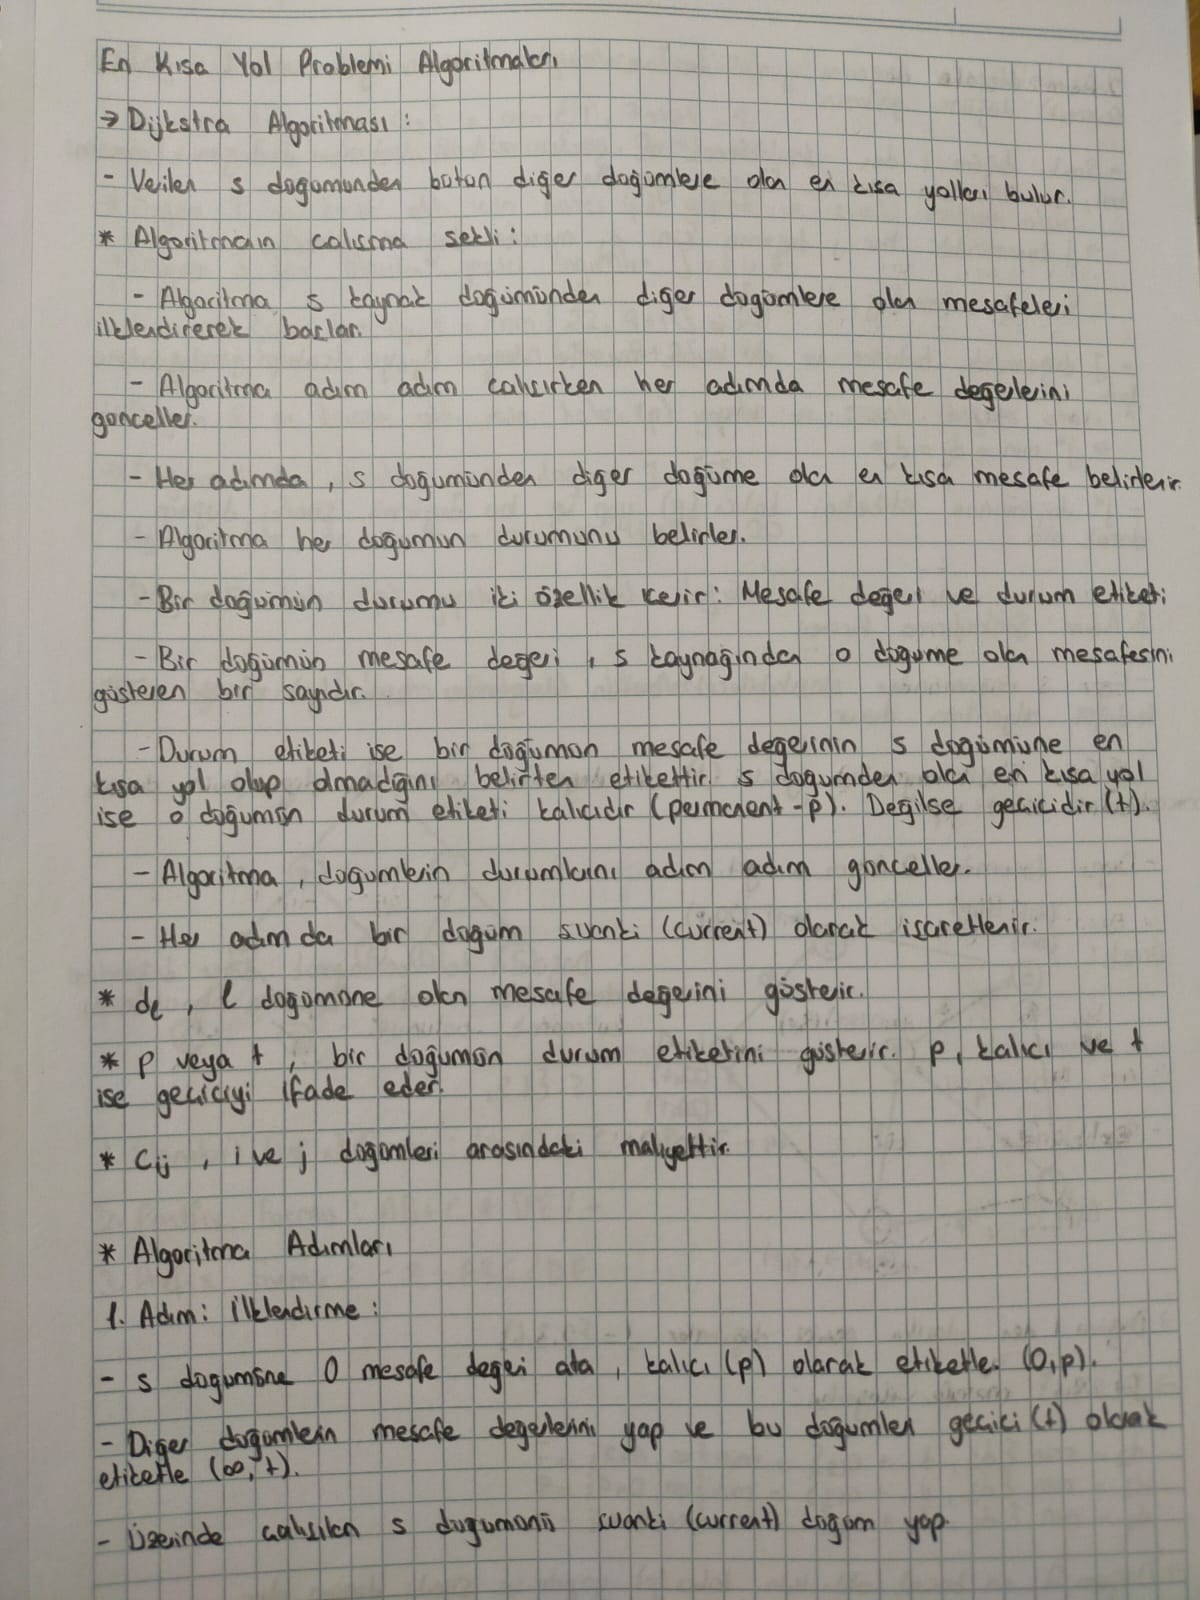 En Kısa Yol Problemi Algoritmaları
→ Dijkstra Algoritması:
- Verilen s dogumunden butun diğer doğumlere olan en kısa yolları bulur.
* Algoritmanın calısma sekli:
- Algoritma s kaynak dogümünden diger dogümlere olan mesafeleri
ilklendirerek baslar.
- Algoritma adım adım calısırken her adımda mesafe değerlerini
gonceller.
- Her adımda, s doğumünden diger doğüme olan en kısa mesafe belirlenir.
- Algoritma her doğumun durumunu belirler.
- Bir doğümün durumu iki özellik icerir: Mesafe değeri ve durum etiketi
- Bir doğümün mesafe değeri, s kaynağından o doğume olan mesafesini
gösteren bir sayıdır.
- Durum etiketi ise bir doğumun mesafe degerinin s dogümüne en
kısa yol olup olmadığını belirten etikettir. s dogumden olan en kısa yol
ise o doğumün durum etiketi kalıcıdır (permanent-p). Değilse gecicidir (t).
- Algoritma, dogumlerin durumlarını adım adım gonceller.
- Her adım da bir dogum suanki (current) olarak isaretlenir.
* dℓ, ℓ dogomone olan mesafe değerini gösterir.
* p veya t, bir doğumün durum etiketini gösterir. p, kalıcı ve t
ise geciciyi ifade eder.
* Cij, i ve j dogomleri arasındaki maliyettir.
* Algoritma Adımları
1. Adım: İlklendirme:
- s dogumüne 0 mesafe degeri ata, kalıcı (p) olarak etiketle. (0,p).
- Diğer doğumlerin mesafe değerlerini yap ve bu doğumleri gecici (t) olarak
etiketle (∞, t).
- Üzerinde calısılan s dugumonü suanki (current) doğom yap.